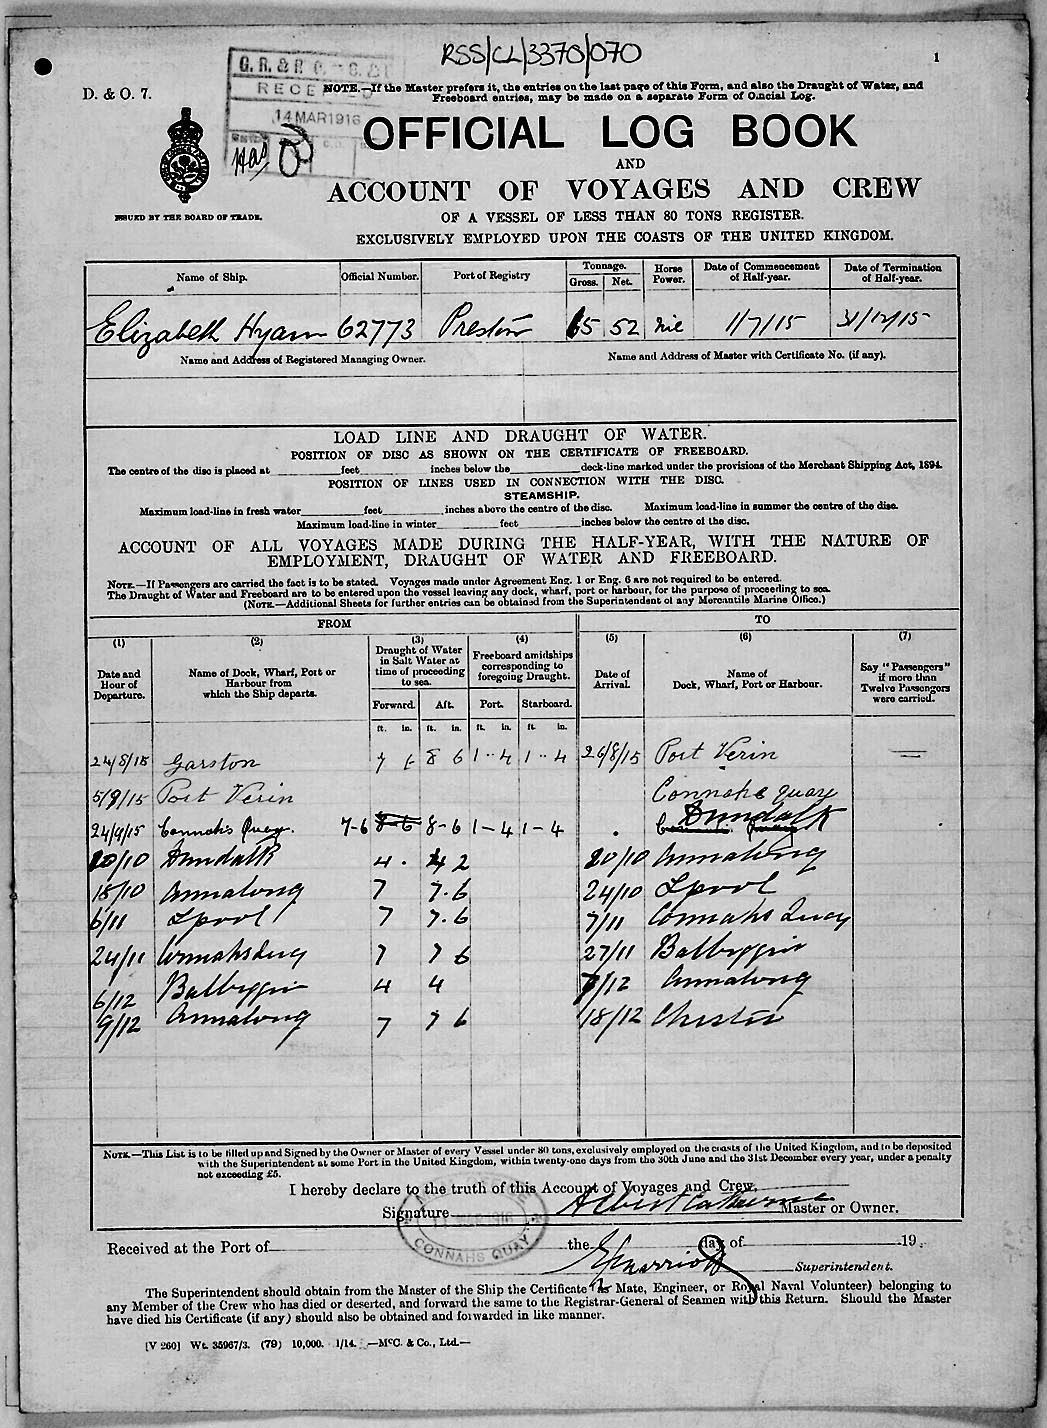 RSS/CL/3370/070
1
D. & O. 7.
RECEIVED
14 MAR 1916
NOTE.—If the Master prefers it, the entries on the last page of this Form, and also the Draught of Water, and
Freeboard entries, may be made on a separate Form of Official Log.
OFFICIAL LOG BOOK
AND
ACCOUNT OF VOYAGES AND CREW
ISSUED BY THE BOARD OF TRADE.
OF A VESSEL OF LESS THAN 80 TONS REGISTER.
EXCLUSIVELY EMPLOYED UPON THE COASTS OF THE UNITED KINGDOM.
Name of Ship. Official Number. Port of Registry Tonnage. Gross. Net. Horse Power. Date of Commencement of Half-year. Date of Termination of Half-year.
Elizabeth Hyam 62773 Preston 65 52 Nil 1/7/15 31/12/15
Name and Address of Registered Managing Owner. Name and Address of Master with Certificate No. (if any).
LOAD LINE AND DRAUGHT OF WATER.
POSITION OF DISC AS SHOWN ON THE CERTIFICATE OF FREEBOARD.
The centre of the disc is placed at feet inches below the deck-line marked under the provisions of the Merchant Shipping Act, 1894.
POSITION OF LINES USED IN CONNECTION WITH THE DISC.
STEAMSHIP.
Maximum load-line in fresh water feet inches above the centre of the disc. Maximum load-line in summer the centre of the disc.
Maximum load-line in winter feet inches below the centre of the disc.
ACCOUNT OF ALL VOYAGES MADE DURING THE HALF-YEAR, WITH THE NATURE OF
EMPLOYMENT, DRAUGHT OF WATER AND FREEBOARD.
NOTE.—If Passengers are carried the fact is to be stated. Voyages made under Agreement Eng. 1 or Eng. 6 are not required to be entered.
The Draught of Water and Freeboard are to be entered upon the vessel leaving any dock, wharf, port or harbour, for the purpose of proceeding to sea.
(NOTE.—Additional Sheets for further entries can be obtained from the Superintendent of any Mercantile Marine Office.)
FROM TO
(1) (2) (3) (4) (5) (6) (7)
Date and Hour of Departure. Name of Dock, Wharf, Port or Harbour from which the Ship departs. Draught of Water in Salt Water at time of proceeding to sea. Freeboard amidships corresponding to foregoing Draught. Date of Arrival. Name of Dock, Wharf, Port or Harbour. Say "Passengers" if more than Twelve Passengers were carried.
Forward. Aft. Port. Starboard.
ft. in. ft. in. ft. in. ft. in.
24/8/15 Garston 7 6 8 6 1 - 4 1 - 4 26/8/15 Port Verin
5/9/15 Port Verin Connahs Quay
24/9/15 Connahs Quay. 7-6 8-6 8-6 1-4 1-4 Dundalk
10/10 Dundalk 4 4 2 20/10 Annalong
18/10 Annalong 7 7.6 24/10 Lpool
6/11 Lpool 7 7.6 7/11 Connahs Quay
24/11 Connahs Quay 7 7 6 27/11 Balbriggin
6/12 Balbriggin 4 4 7/12 Annalong
9/12 Annalong 7 7 6 18/12 Chester
NOTE.—This List is to be filled up and Signed by the Owner or Master of every Vessel under 80 tons, exclusively employed on the coasts of the United Kingdom, and to be deposited
with the Superintendent at some Port in the United Kingdom, within twenty-one days from the 30th June and the 31st December every year, under a penalty
not exceeding £5.
I hereby declare to the truth of this Account of Voyages and Crew.
Signature Albert Master or Owner.
CONNAHS QUAY
Received at the Port of the day of 19 .
Superintendent.
The Superintendent should obtain from the Master of the Ship the Certificate (as Mate, Engineer, or Royal Naval Volunteer) belonging to
any Member of the Crew who has died or deserted, and forward the same to the Registrar-General of Seamen with this Return. Should the Master
have died his Certificate (if any) should also be obtained and forwarded in like manner.
[V 260] Wt. 35967/3. (79) 10,000. 1/14. —McC. & Co., Ltd.—